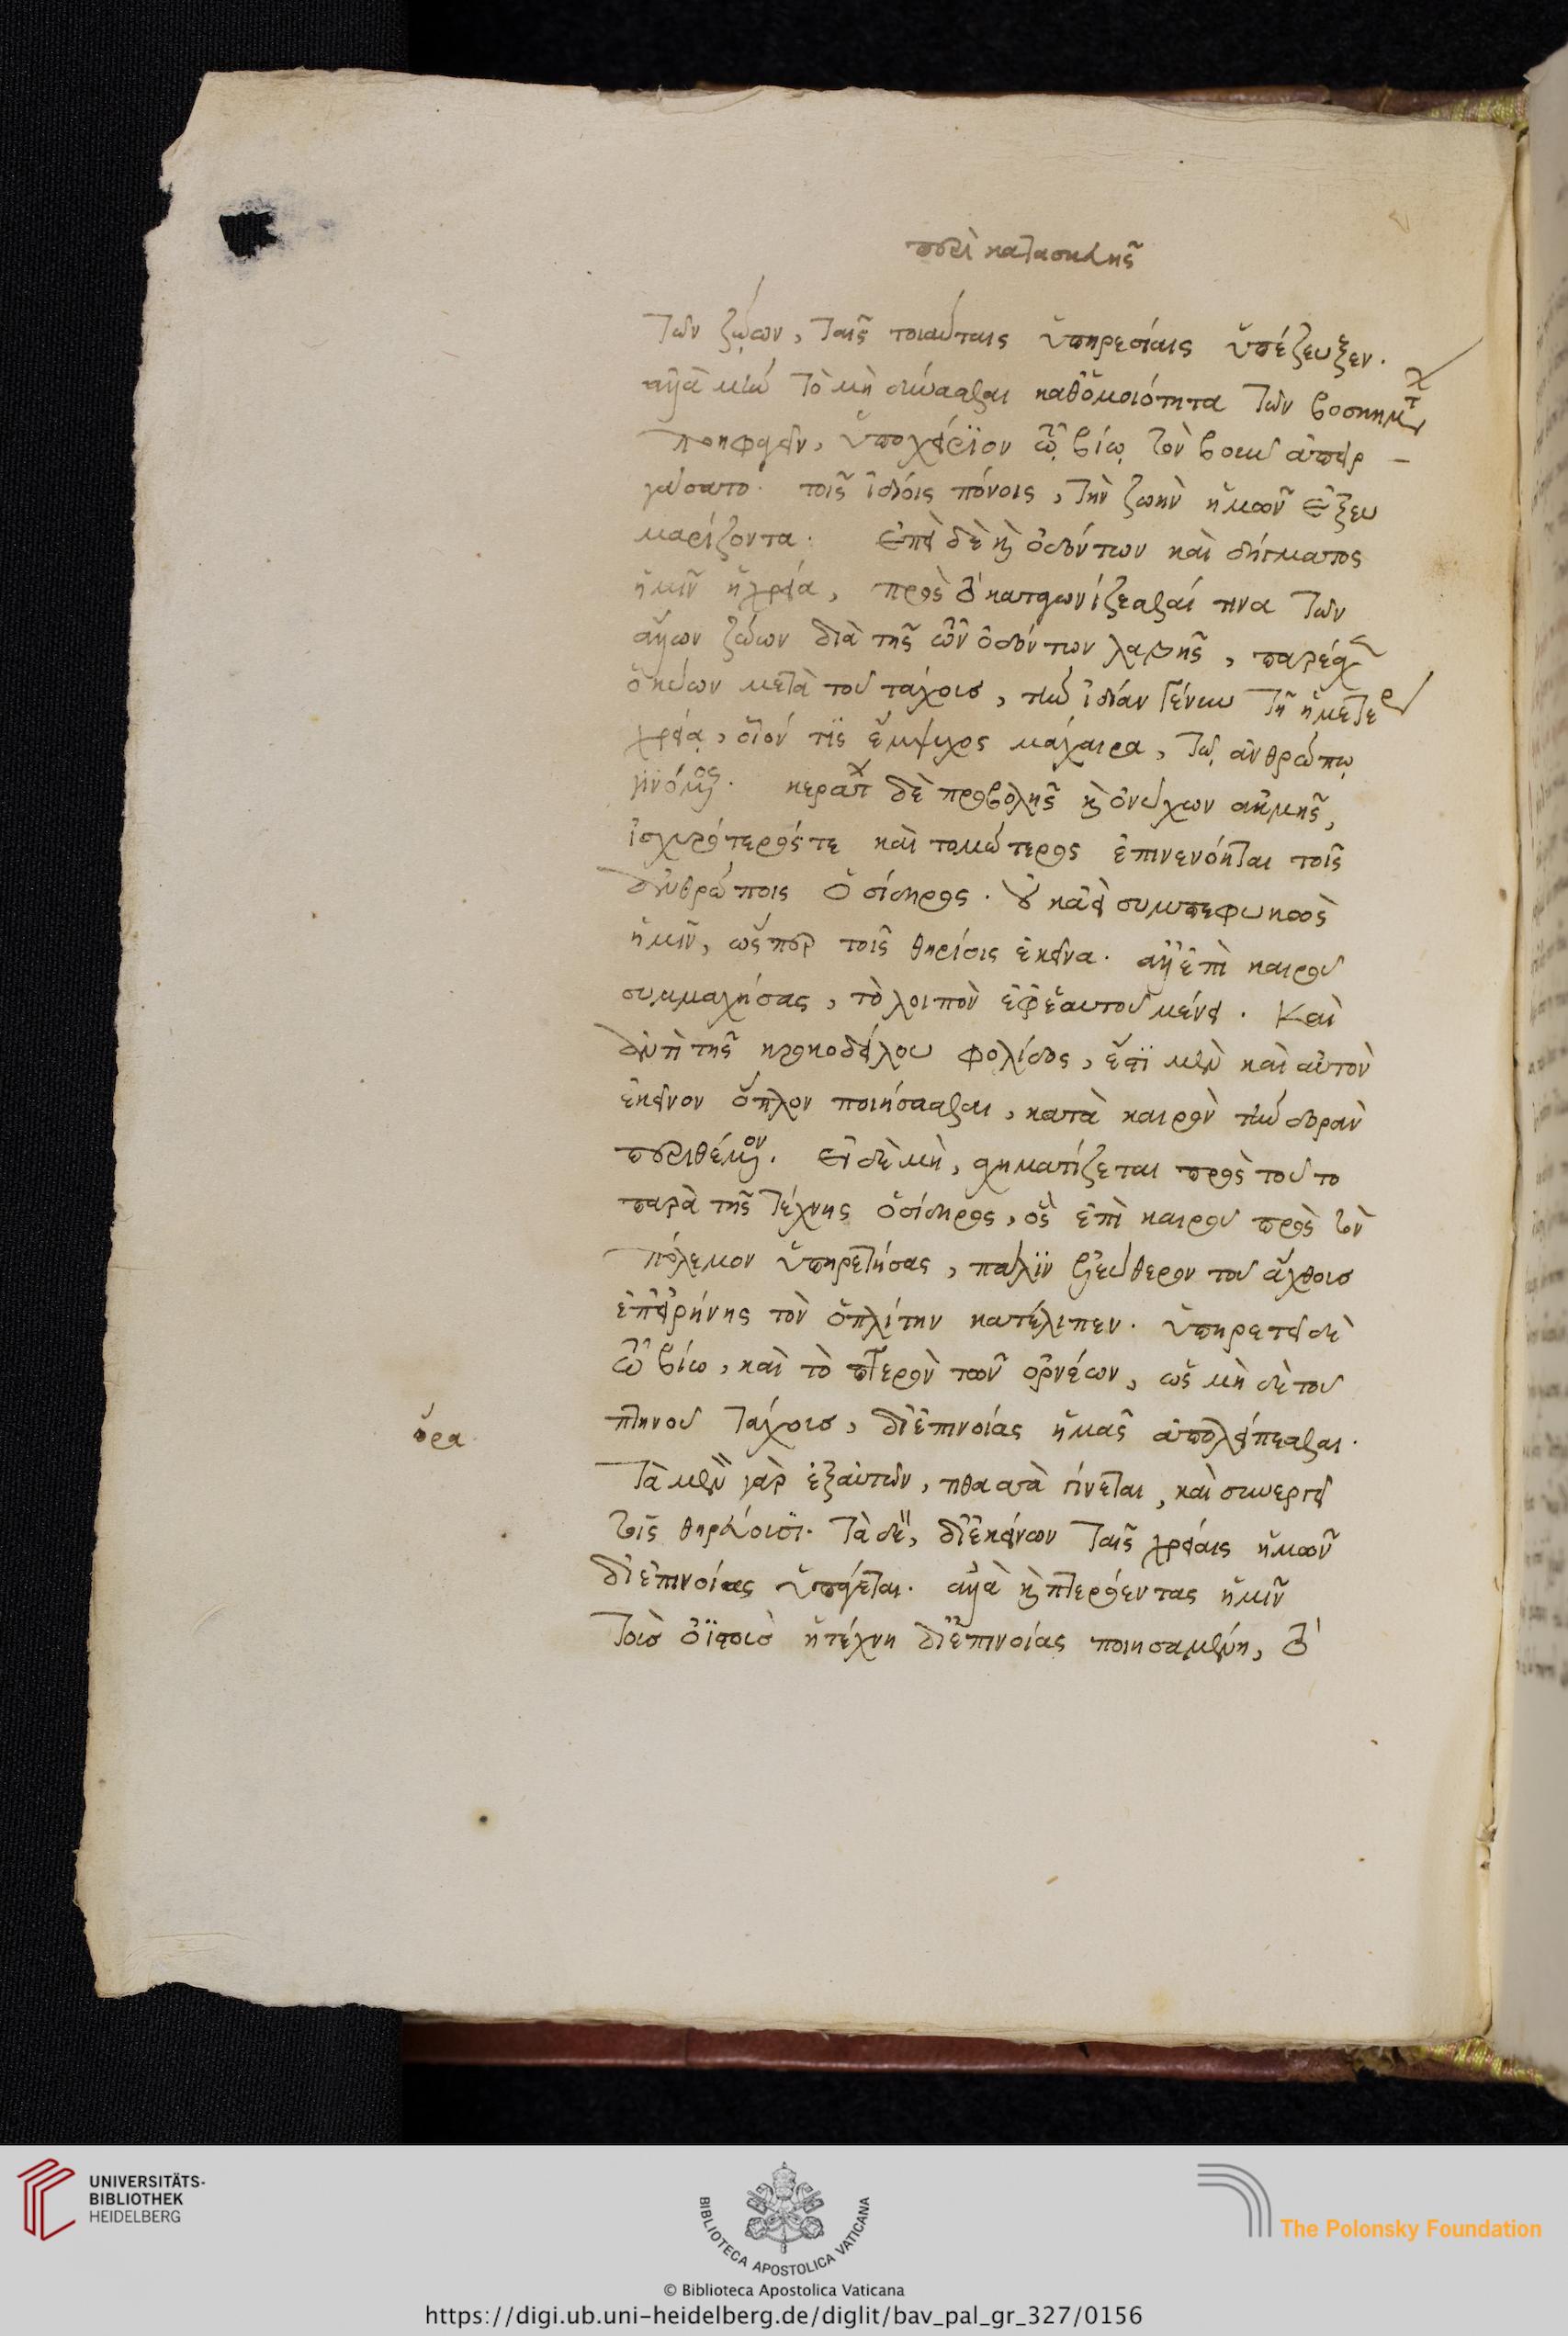 περὶ κατασκευῆς
τῶν ζῴων, ταῖς τοιαύταις ὑπηρεσίαις ὑπέζευξεν.
ἀλλὰ μὴν τὸ μὴ δύνασθαι καθομοιότητα τῶν βοσκημάτ
ποηφαγεῖν, ὑποχείριον τῷ βίῳ τὸν βοῦν ἀπειρ-
γάσατο. τοῖς ἰδίοις πόνοις, τὴν ζωὴν ἡμῶν ἐξευ
μαρίζοντα. ἐπεὶ δὲ καὶ ὀδόντων καὶ δήγματος
ἡμῖν ἡ χρεία, πρὸς τὸ καταγωνίζεσθαί τινα τῶν
ἄλλων ζώων διὰ τῆς τῶν ὀδόντων λαβῆς, παρέσχε
ὁ κύων μετὰ τοῦ τάχους, τὴν ἰδίαν γένυν τῇ ἡμετέρᾳ
χρείᾳ, οἷόν τις ἔμψυχος μάχαιρα, τῷ ἀνθρώπῳ
γινόμενος. κεράτων δὲ προβολῆς καὶ ὀνύχων ἀκμῆς,
ἰσχυρότερός τε καὶ τομώτερος ἐπινενόηται τοῖς
ἀνθρώποις ὁ σίδηρος. οὐκ ἀεὶ συμπεφυκὼς
ἡμῖν, ὥσπερ τοῖς θηρίοις ἐκεῖνα. ἀλλ' ἐπὶ καιροῦ
συμμαχήσας, τὸ λοιπὸν ἐφ' ἑαυτοῦ μένει. Καὶ
ἀντὶ τῆς κροκοδείλου φολίδος, ἔστι μὲν καὶ αὐτὸν
ἐκεῖνον ὅπλον ποιήσασθαι, κατὰ καιρὸν τὴν δορὰν
περιθέμενον. εἰ δὲ μὴ, σχηματίζεται πρὸς τοῦτο
παρὰ τῆς τέχνης ὁ σίδηρος, ὃς ἐπὶ καιροῦ πρὸς τὸν
πόλεμον ὑπηρετήσας, πάλιν ἐλεύθερον τοῦ ἄχθους
ἐπ' εἰρήνης τὸν ὁπλίτην κατέλιπεν. ὑπηρετεῖ δὲ
τῷ βίῳ, καὶ τὸ πτερὸν τῶν ὀρνέων, ὡς μὴ δὲ τοῦ
πτηνοῦ τάχους, δι' ἐπινοίας ἡμᾶς ἀπολείπεσθαι.
ὅρα
Τὰ μὲν γὰρ ἐξ αὐτῶν, τιθασσὰ γίνεται, καὶ συνεργεῖ
τοῖς θηρεύουσι. τὰ δὲ, δι' ἐκείνων ταῖς χρείαις ἡμῶν
δι' ἐπινοίας ὑπάγεται. ἀλλὰ καὶ πτερόεντας ἡμῖν
τοὺς ὀϊστοὺς ἡ τέχνη δι' ἐπινοίας ποιησαμένη, τὸ
UNIVERSITÄTS-
BIBLIOTHEK
HEIDELBERG
BIBLIOTECA APOSTOLICA VATICANA
The Polonsky Foundation
© Biblioteca Apostolica Vaticana
https://digi.ub.uni-heidelberg.de/diglit/bav_pal_gr_327/0156